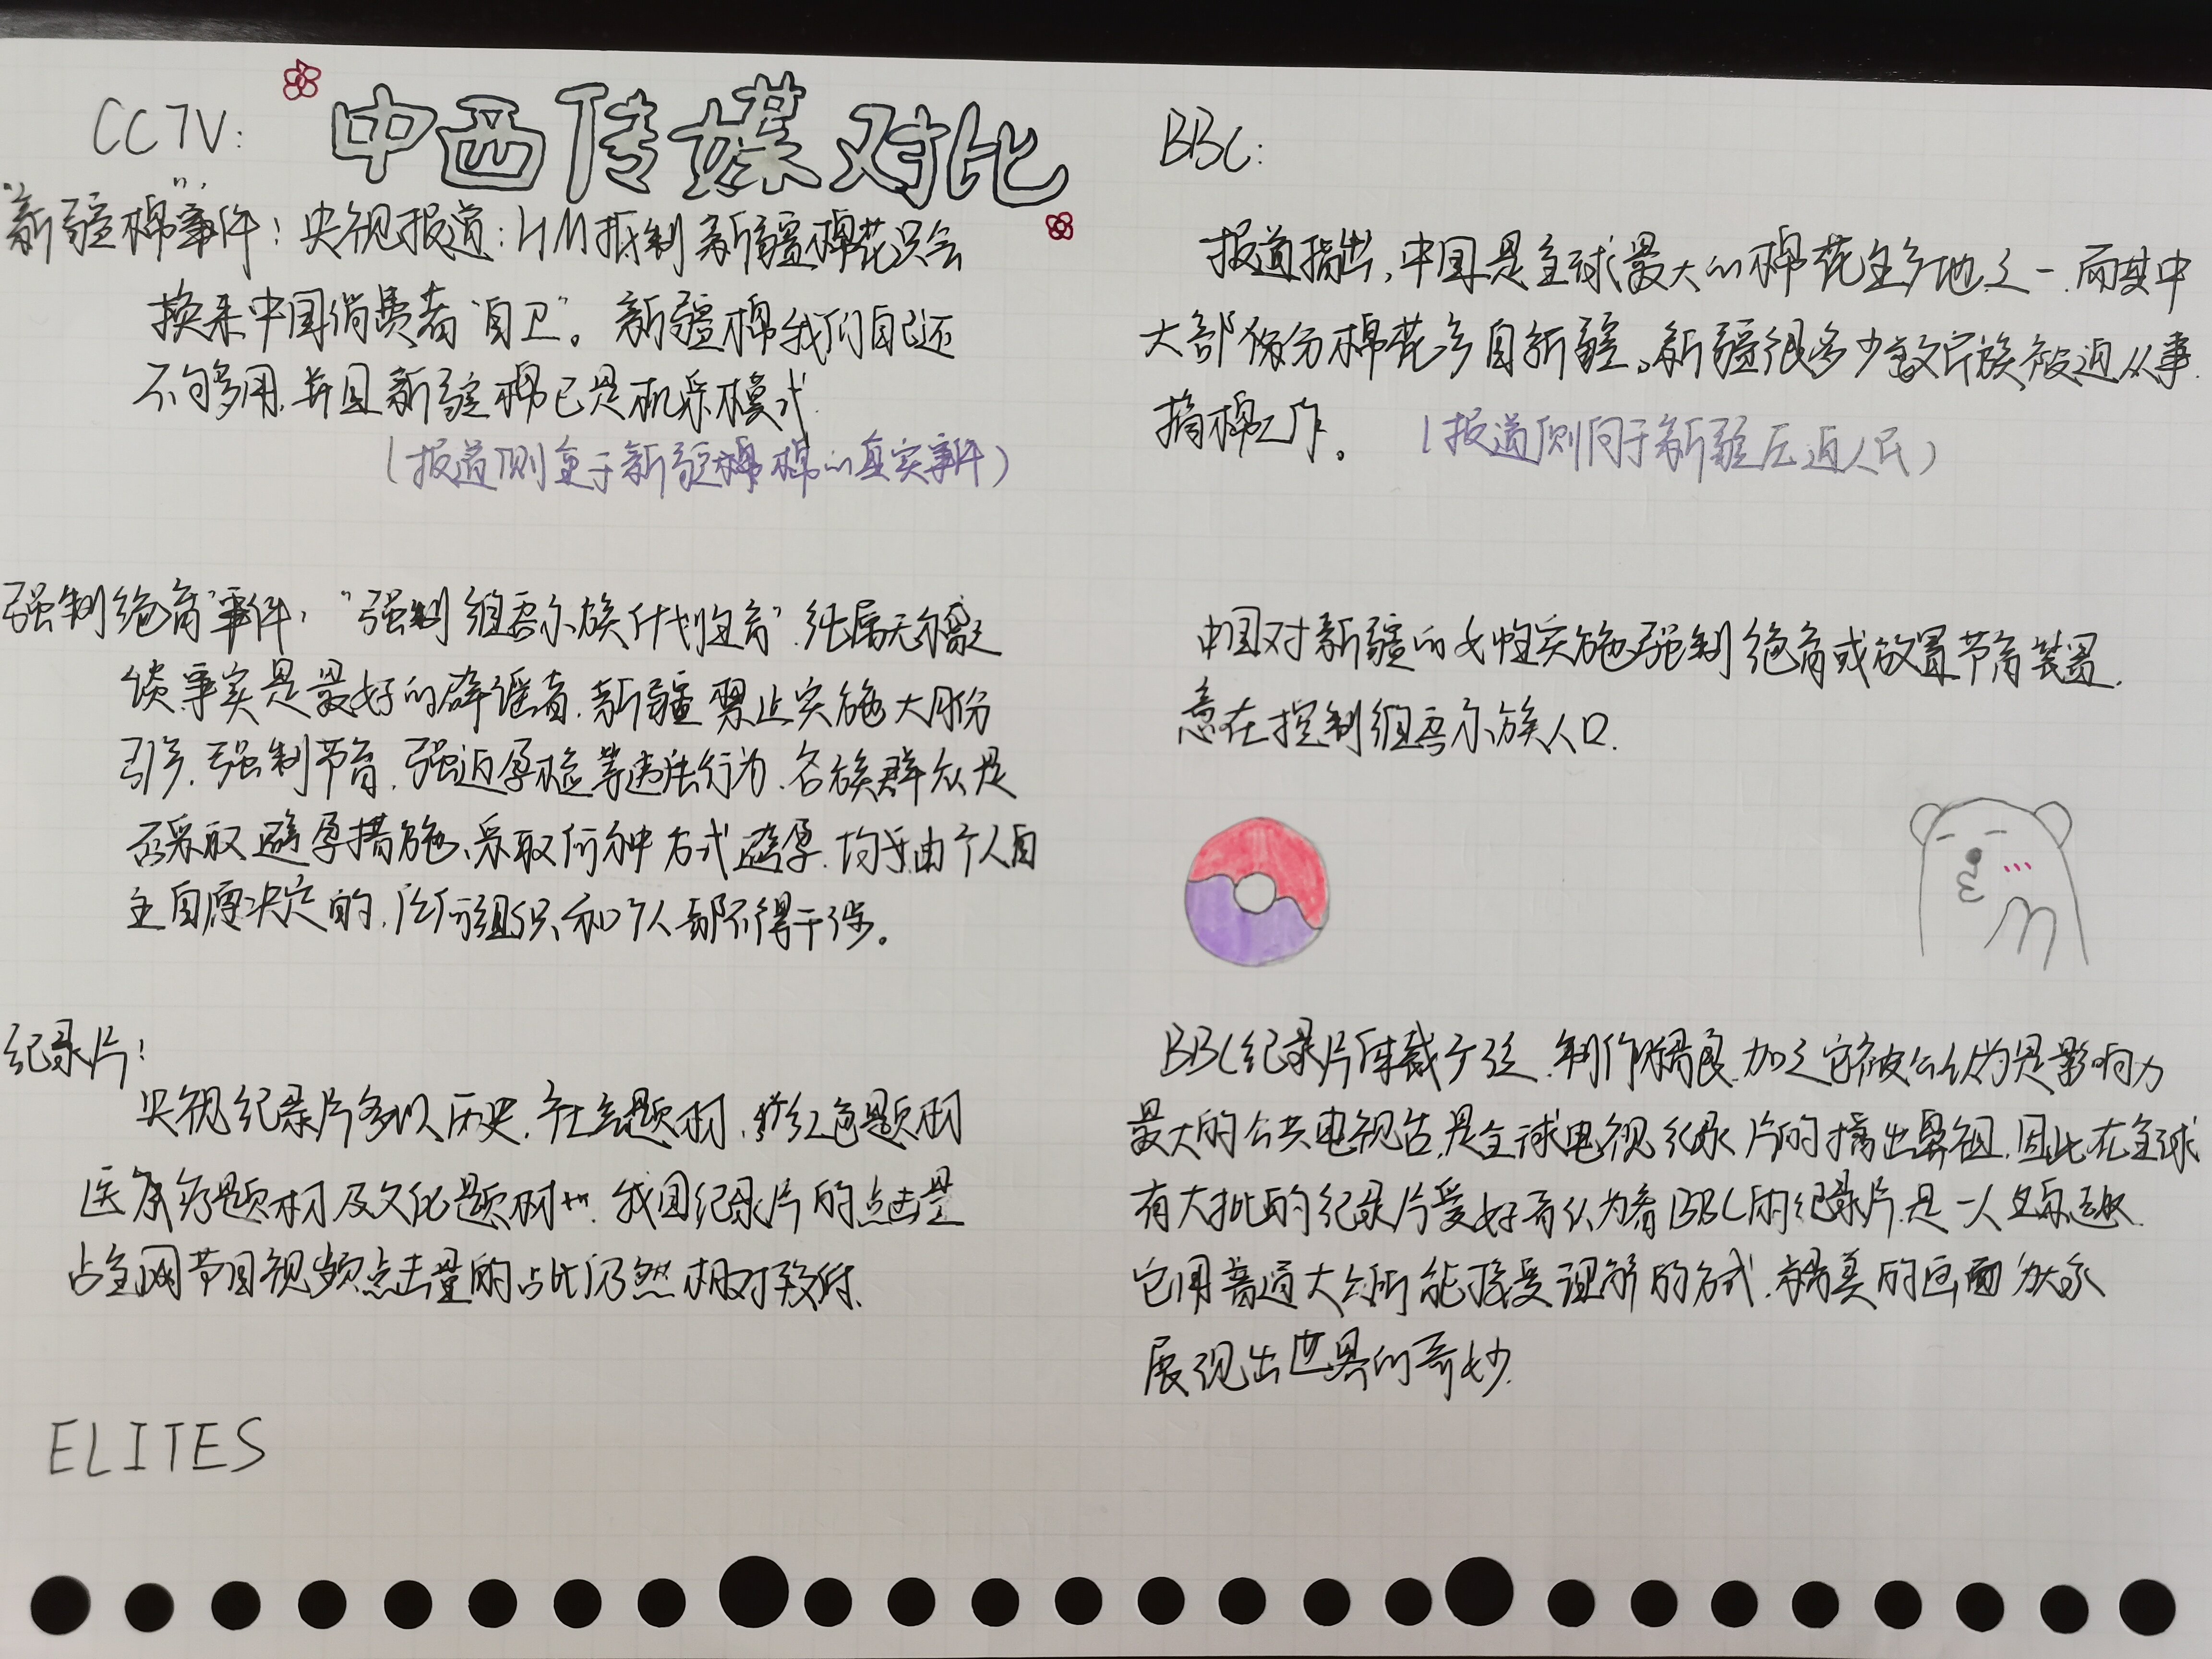 中西传媒对比
CCTV:
"新疆棉"事件：央视报道：HM抵制新疆棉花只会
换来中国消费者"自卫"。新疆棉我们自己还
不够用，并且新疆棉已是机采模式.
(报道侧重于新疆棉棉的真实事件)
强制绝育"事件，"强制维吾尔族计划生育"纯属无稽之
谈事实是最好的辟谣者.新疆禁止实施大月份
引产.强制节育.强迫孕检等违法行为.各族群众是
否采取避孕措施、采取何种方式避孕.均是由个人自
主自愿决定的,任何组织和个人都不得干涉。
纪录片:
央视纪录片多以历史.社会题材.红色题材
医疗题材及文化题材….我国纪录片的点击量
占全网节目视频点击量的占比仍然相对较低.
ELITES
BBC:
报道指出,中国是全球最大的棉花生产地之一.而其中
大部份分棉花产自新疆。新疆很多少数民族被迫从事
摘棉工作。(报道侧向于新疆压迫人民)
中国对新疆的女性实施强制绝育或放置节育装置.
意在控制维吾尔族人口.
BBC纪录片体裁广泛.制作精良.加之它被公认为是影响力
最大的公共电视台,是全球电视纪录片的播出鼻祖.因此在全球
有大批的纪录片爱好者认为看BBC的纪录片是一人生乐趣.
它用普通大众所能接受理解的方式.精美的画面为大家
展现出世界的奇妙.